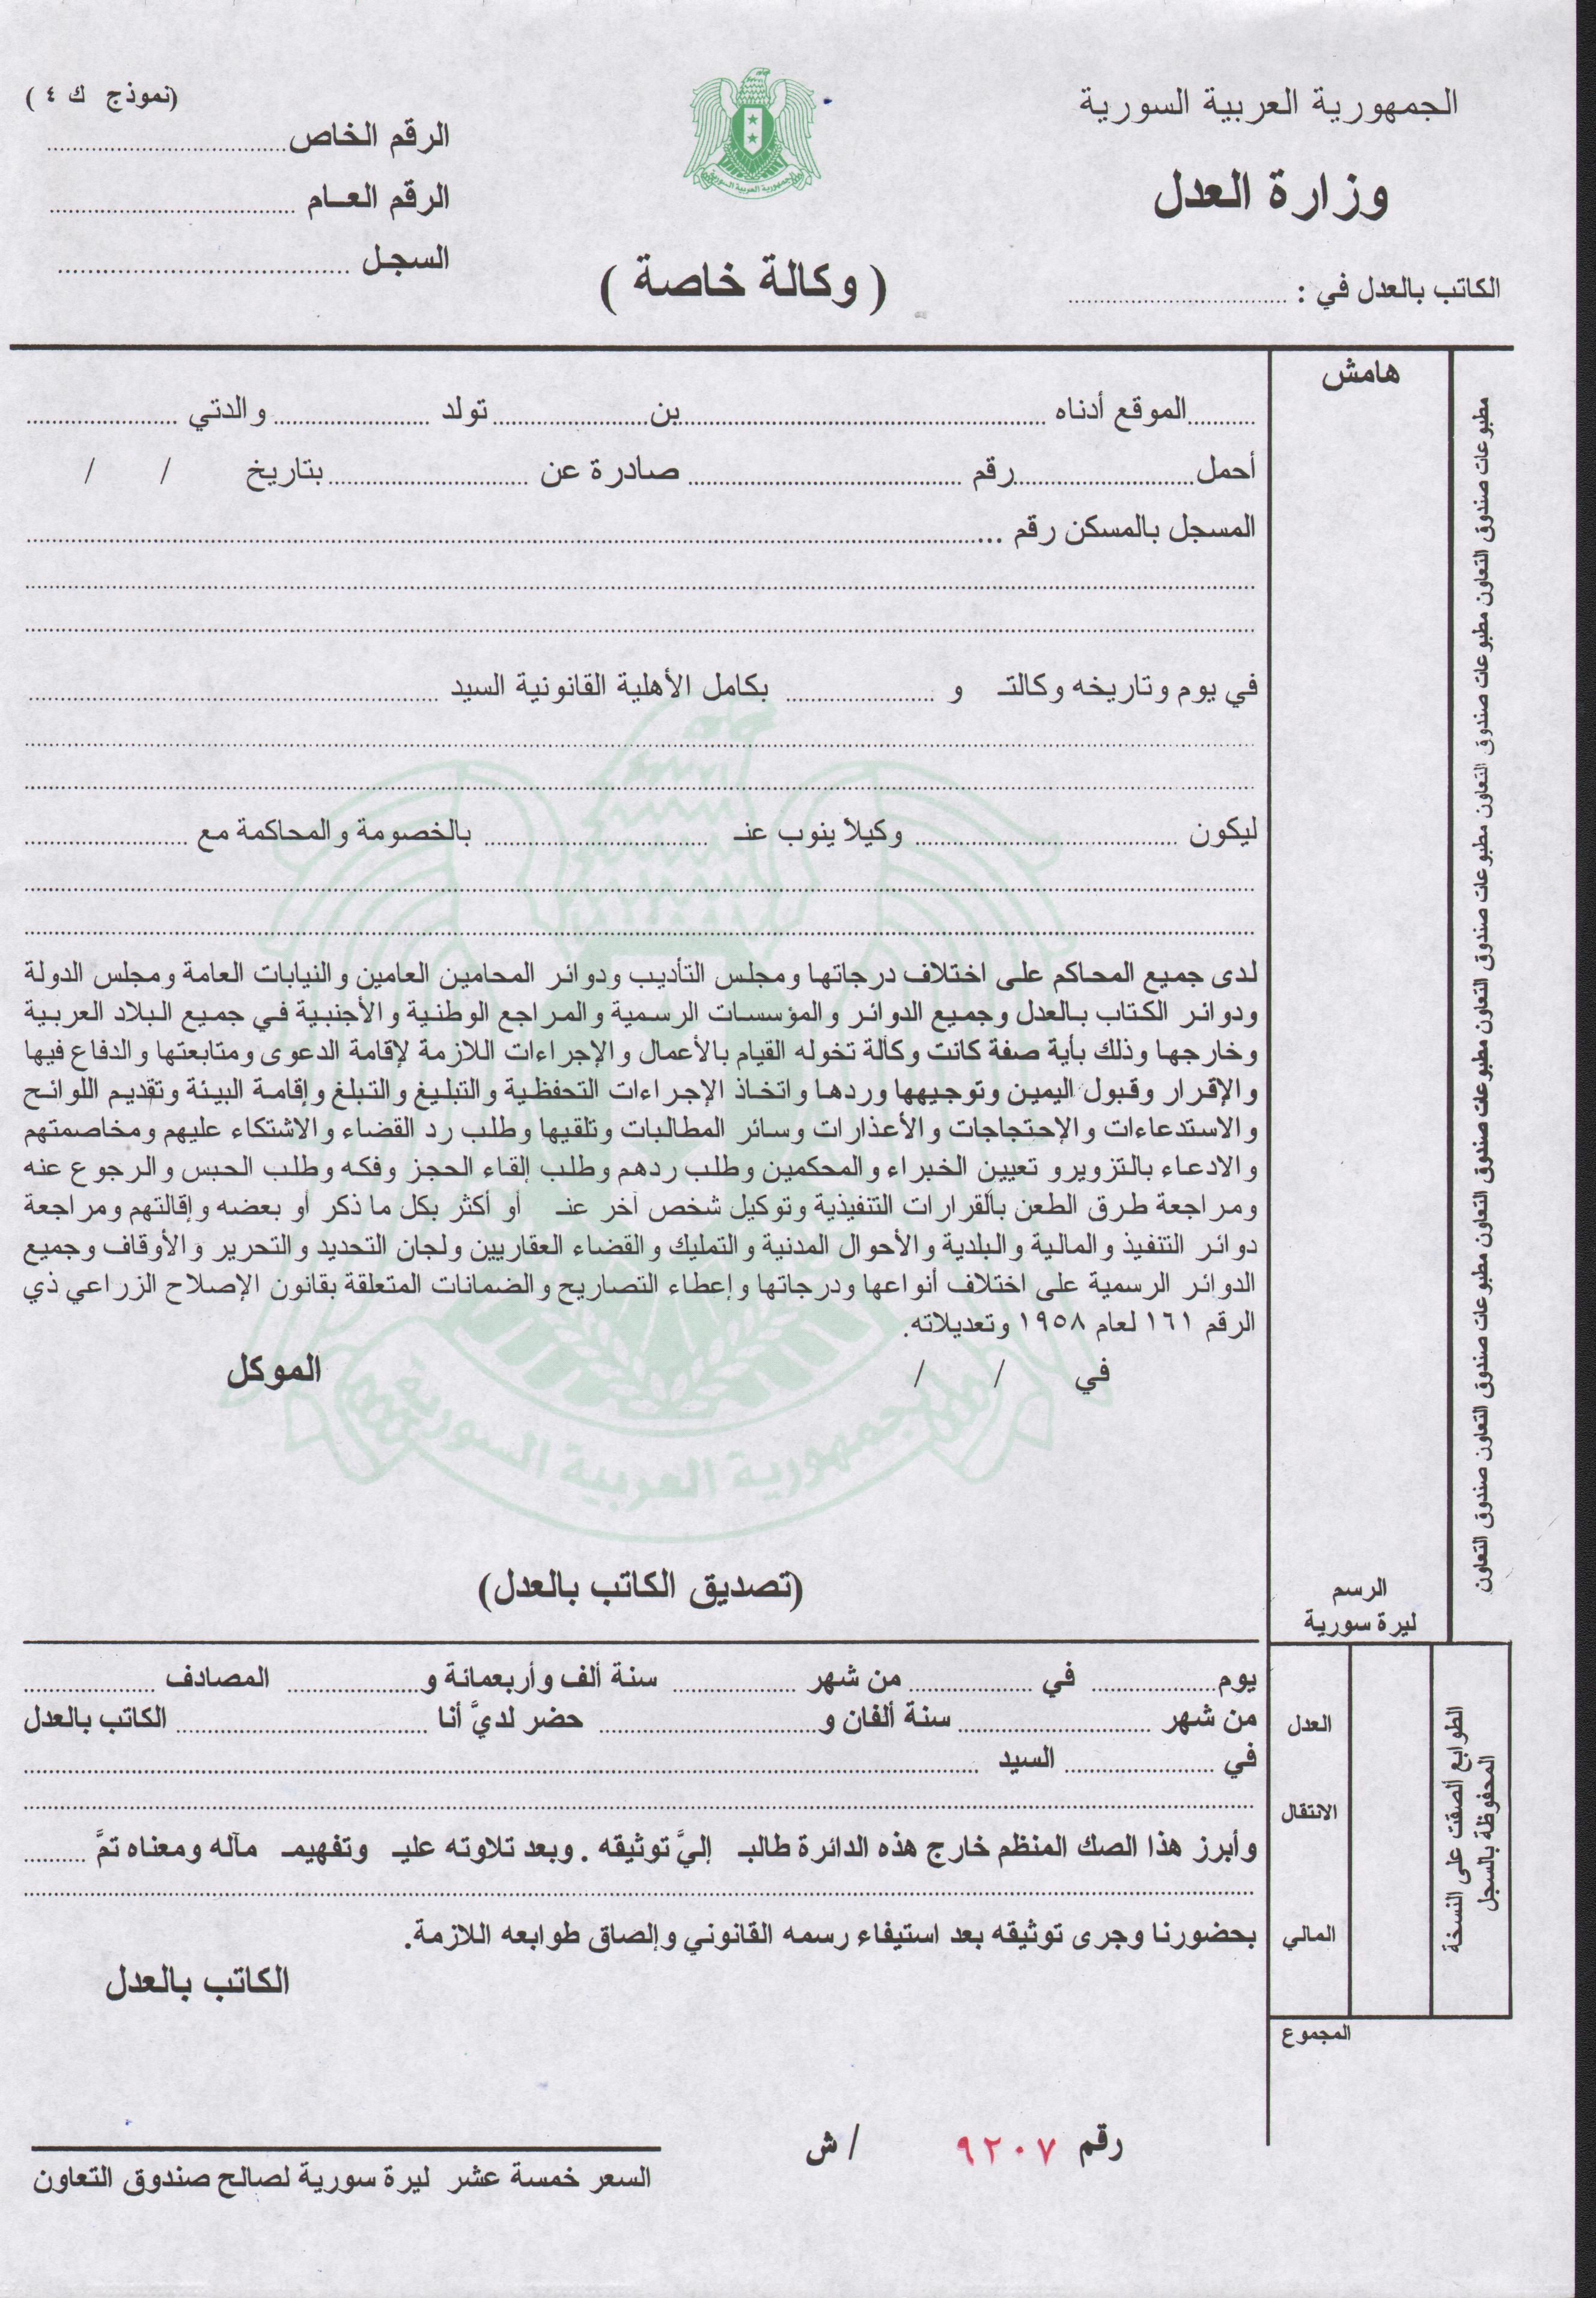 الجمهورية العربية السورية
وزارة العدل
الكاتب بالعدل في : ..............................
الجمهورية العربية السورية
( وكالة خاصة )
(نموذج ك ٤ )
الرقم الخاص..............................
الرقم العــام ..............................
السجـل ..............................
هامش
..........الموقع أدناه ..............................بن....................تولد ....................والدتي ....................
أحمل....................رقم .............................. صادرة عن ....................بتاريخ / /
المسجل بالمسكن رقم ...............................................................
...............................................................
...............................................................
في يوم وتاريخه وكالتـ و .................... بكامل الأهلية القانونية السيد ..............................
...............................................................
...............................................................
ليكون .............................. وكيلا ينوب عنـ .............................. بالخصومة والمحاكمة مع ....................
...............................................................
...............................................................
لدى جميع المحاكم على اختلاف درجاتها ومجلس التأديب ودوائر المحامين العامين والنيابات العامة ومجلس الدولة
ودوائر الكتاب بالعدل وجميع الدوائر والمؤسسات الرسمية والمراجع الوطنية والأجنبية في جميع البلاد العربية
وخارجها وذلك بأية صفة كانت وكالة تخوله القيام بالأعمال والإجراءات اللازمة لإقامة الدعوى ومتابعتها والدفاع فيها
والإقرار وقبول اليمين وتوجيهها وردها واتخاذ الإجراءات التحفظية والتبليغ والتبلغ وإقامة البيئة وتقديم اللوائح
والاستدعاءات والإحتجاجات والأعذارات وسائر المطالبات وتلقيها وطلب رد القضاء والاشتكاء عليهم ومخاصمتهم
والادعاء بالتزويرو تعيين الخبراء والمحكمين وطلب ردهم وطلب إلقاء الحجز وفكه وطلب الحبس والرجوع عنه
ومراجعة طرق الطعن بالقرارات التنفيذية وتوكيل شخص آخر عنـ أو أكثر بكل ما ذكر أو بعضه وإقالتهم ومراجعة
دوائر التنفيذ والمالية والبلدية والأحوال المدنية والتمليك والقضاء العقاريين ولجان التحديد والتحرير والأوقاف وجميع
الدوائر الرسمية على اختلاف أنواعها ودرجاتها وإعطاء التصاريح والضمانات المتعلقة بقانون الإصلاح الزراعي ذي
الرقم ١٦١ لعام ١٩٥٨ وتعديلاته.
في / / الموكل
الجمهورية العربية السورية
(تصديق الكاتب بالعدل)
يوم.................... في ....................من شهر .................... سنة ألف وأربعمائة و.................... المصادف ....................
من شهر ....................سنة ألفان و.................... حضر لديَّ أنا .............................. الكاتب بالعدل
في .................... السيد ..............................
...............................................................
وأبرز هذا الصك المنظم خارج هذه الدائرة طالبـ إليَّ توثيقه . وبعد تلاوته عليـ وتفهيمـ مآله ومعناه تمَّ ..........
...............................................................
بحضورنا وجرى توثيقه بعد استيفاء رسمه القانوني وإلصاق طوابعه اللازمة.
الكاتب بالعدل
الرسم
ليرة سورية
العدل
الانتقال
المالي
المجموع
الطوابع ألصقت على النسخة
المحفوظة بالسجل
مطبوعات صندوق التعاون مطبوعات صندوق التعاون مطبوعات صندوق التعاون مطبوعات صندوق التعاون مطبوعات صندوق التعاون مطبوعات صندوق التعاون صندوق التعاون
رقم ٩٢٠٧ / ش
السعر خمسة عشر ليرة سورية لصالح صندوق التعاون